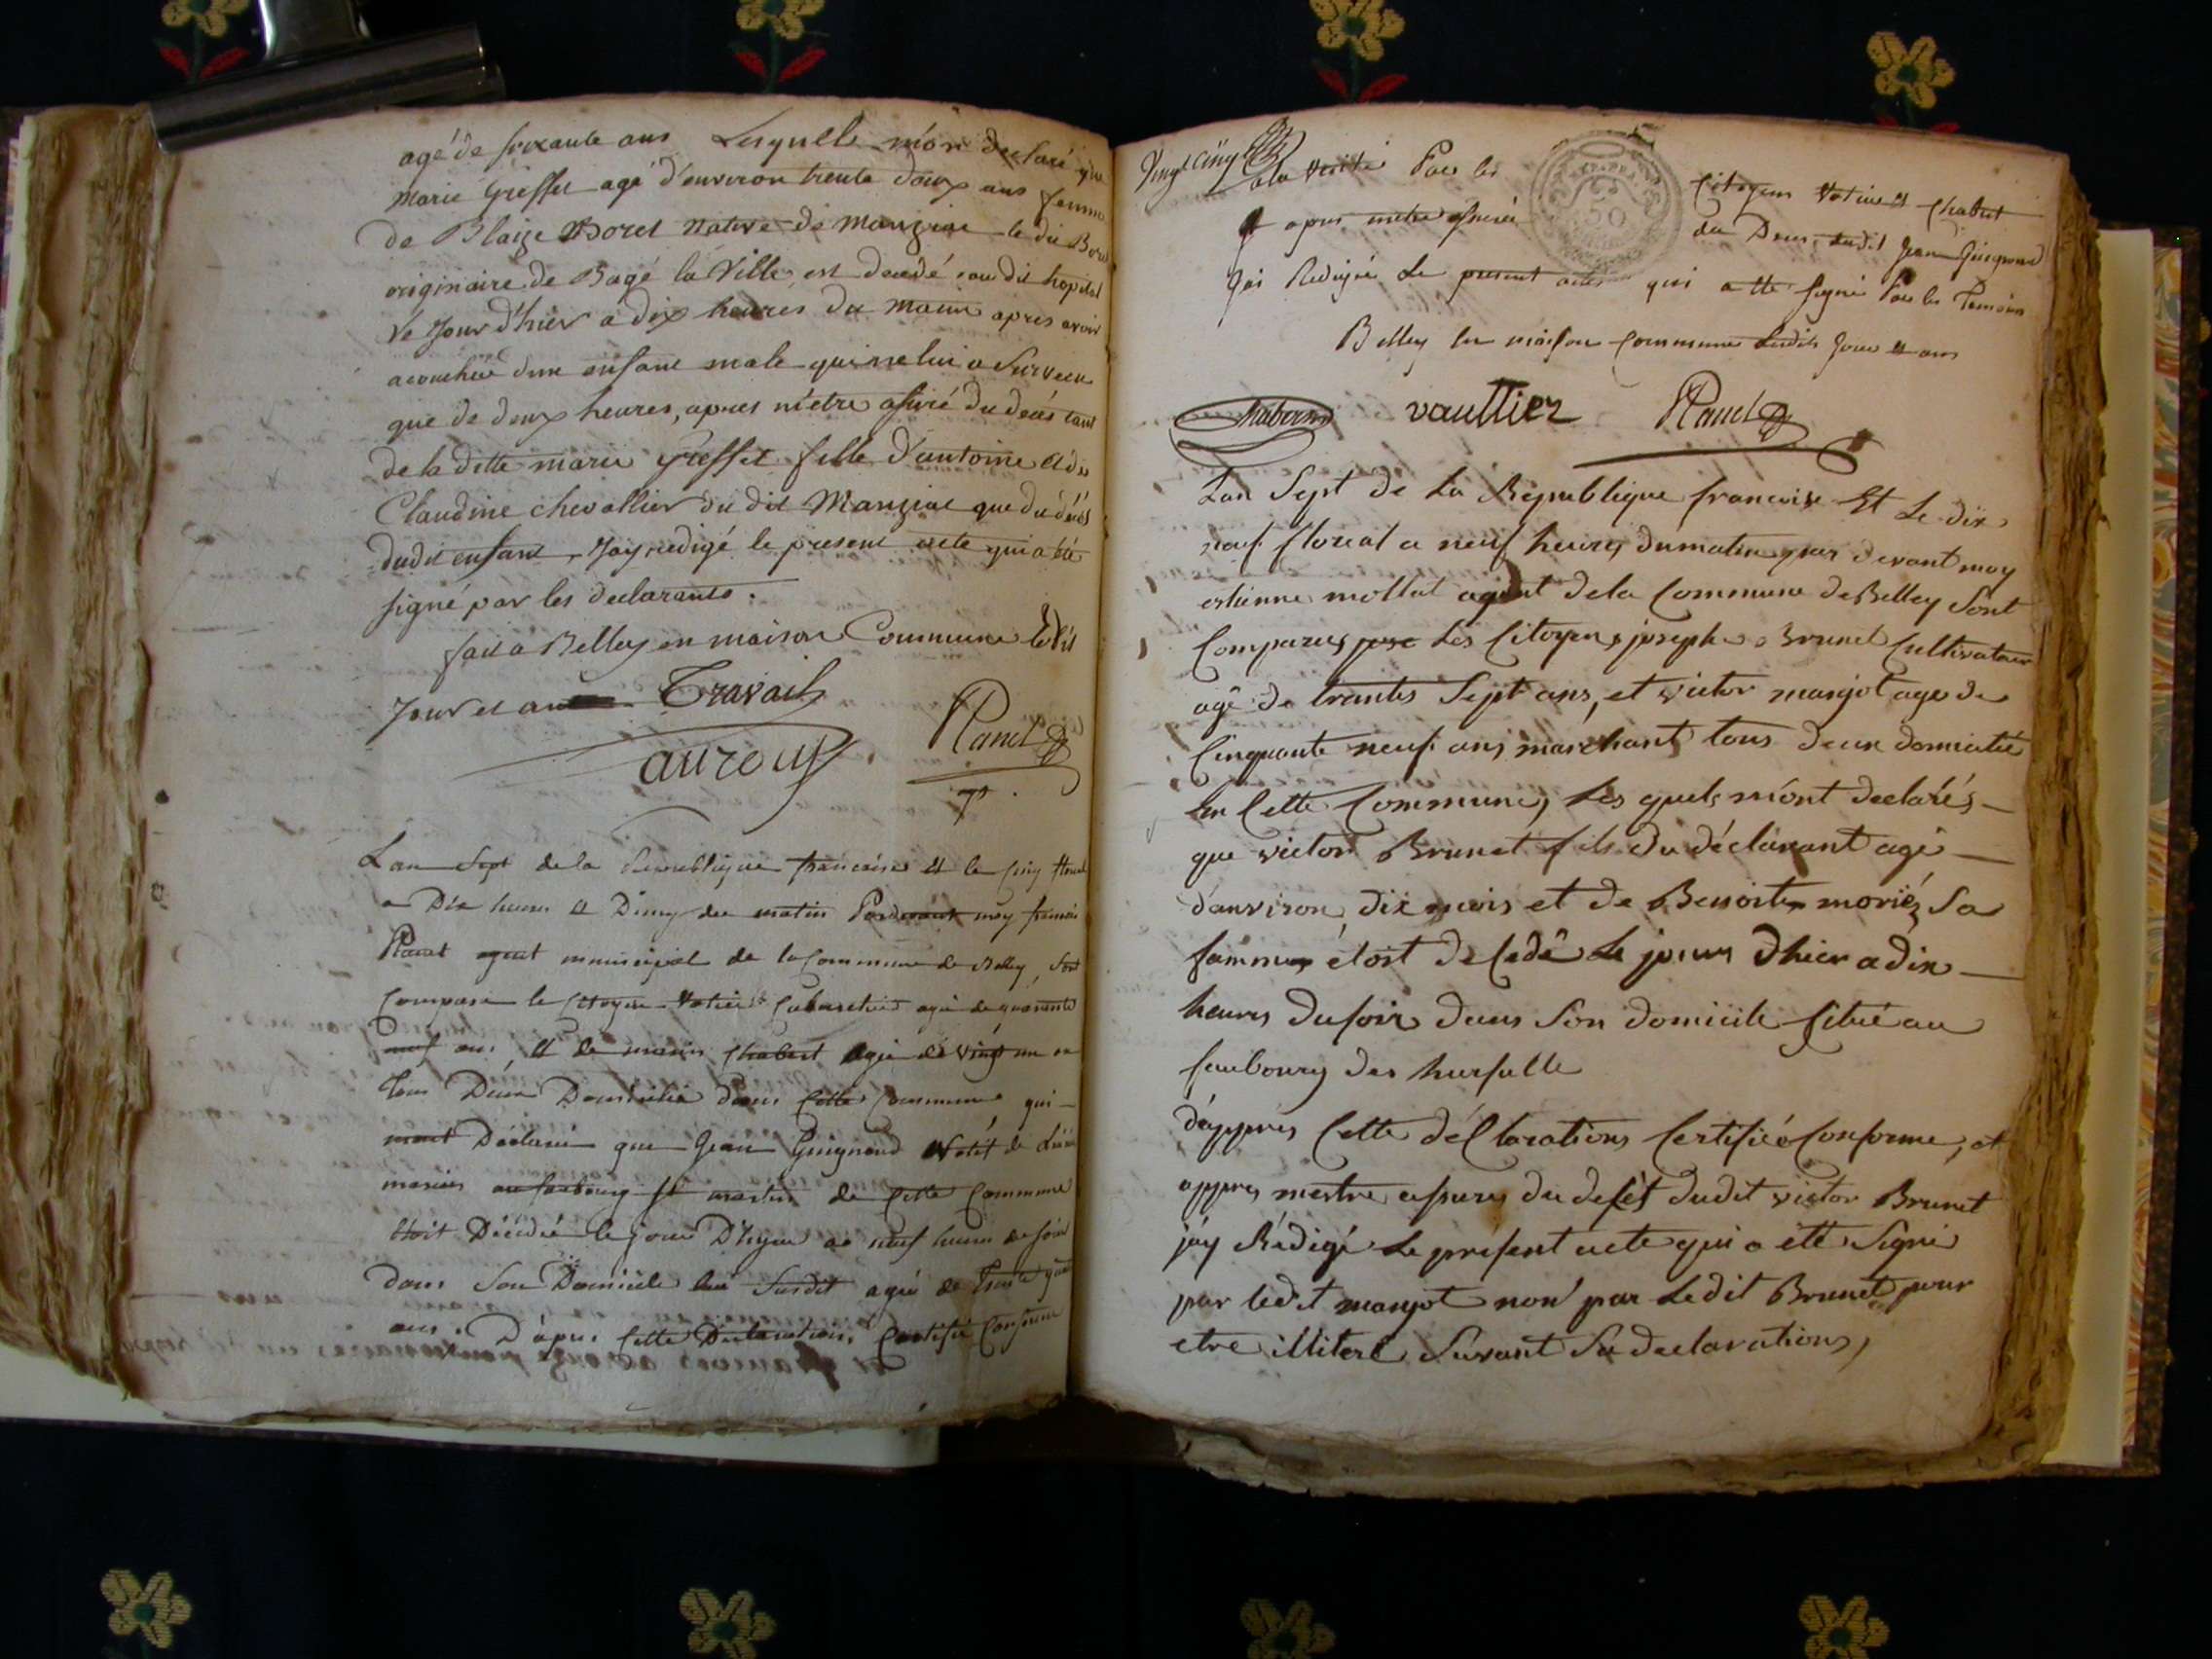 agé de soixante ans Lesquelle mon declaré que
Marie Greffet agé d'environ trente deux ans femme
de Blaize Boret native de Manziat le dit Boret
originaire de Bagé la Ville, est decedé au dit hopital
le Jour d'hier a dix heures du matin apres avoir
acouchée d'un enfant male qui ne lui a Survecu
que de deux heures, apres m'etre assuré du décés tant
de la ditte marie Greffet fille d'antoine et de
Claudine chevallier du dit Manziat que du décés
dudit enfant, J'ay redigé le present acte qui a été
signé par les declarants.
fait a Belley en maison Commune le dit
Jour et an Travail
auroux Planet
Lan Sept de la Republique francaise et le cinq floreal
a Dix heures et Demy du matin Pardevant moy francois
Planet agent municipal de la Commune de Belley, sont
comparu le Citoyen Votier Cabaretier agé de quarante
neuf ans, et de marin Chabert agé de vingt un an
tous Deux Domicilié dans cette Commune qui
mont Déclaré que Jean Guignard Natif de
au faubourg St martin de cette Commune
étoit Décédé le jour D'hyer a neuf heures de soir
dans Son Domicile susdit agé de trente
ans. D'apres cette Declaration, Certifié Conforme
Vingt cinq
a la verité Par les Citoyens Votier et Chabert
et apres metre assuré du Deces dudit Jean Guignard
Jai Redigé Le present acte qui a été signé Par les Temoins
Belley en maison Commune Ledits Jour et an
50
Chabert vaultier Planet
L'an Sept de La Republique francaise Et Le dix
neuf floreal a neuf heures du matin par devant moy
estienne mollat agent de la Commune de Belley Sont
Comparus Les Citoyens joseph Brunet Cultivateur
agé de trantes Sept ans, et victor manjot age de
Cinquante neuf ans marchant tous deux domicilié
en Cette Commune, Les quels m'ont declarés
que victor Brunet fils du déclarant agé
d'anviron dix mois et de Benoite moriéz Sa
famme étoit decedé Le jours d'hier a dix
heures du soir dans Son domicile situé au
faubourg des hursulle
d'apprés Cette déClarations Certifiée Conforme, et
appres mestre assurés du decét dudit victor Brunet
j'ay Rédigé Le présent acte qui a été Signé
par ledit manjot non par Ledit Brunet pour
etre illiteré Suivant Sa declarations,